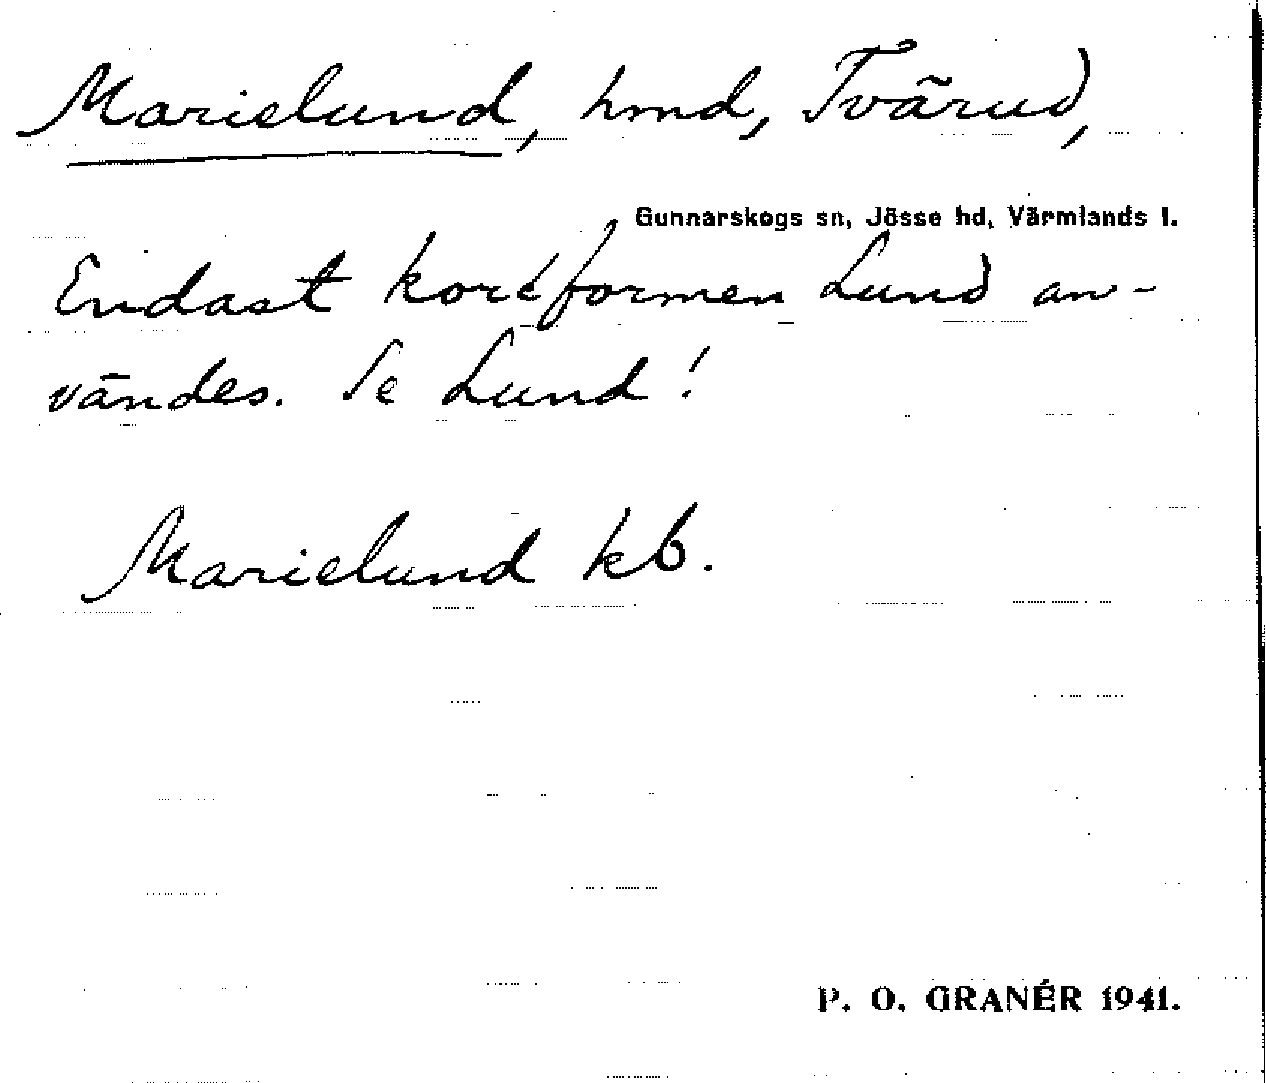 Marielund, hmd, Tvärud,
Gunnarskogs sn, Jösse hd, Värmlands l.
Endast kortformen Lund an-
vändes. Se Lund!
Marielund kb.
P. O. GRANÉR 1941.